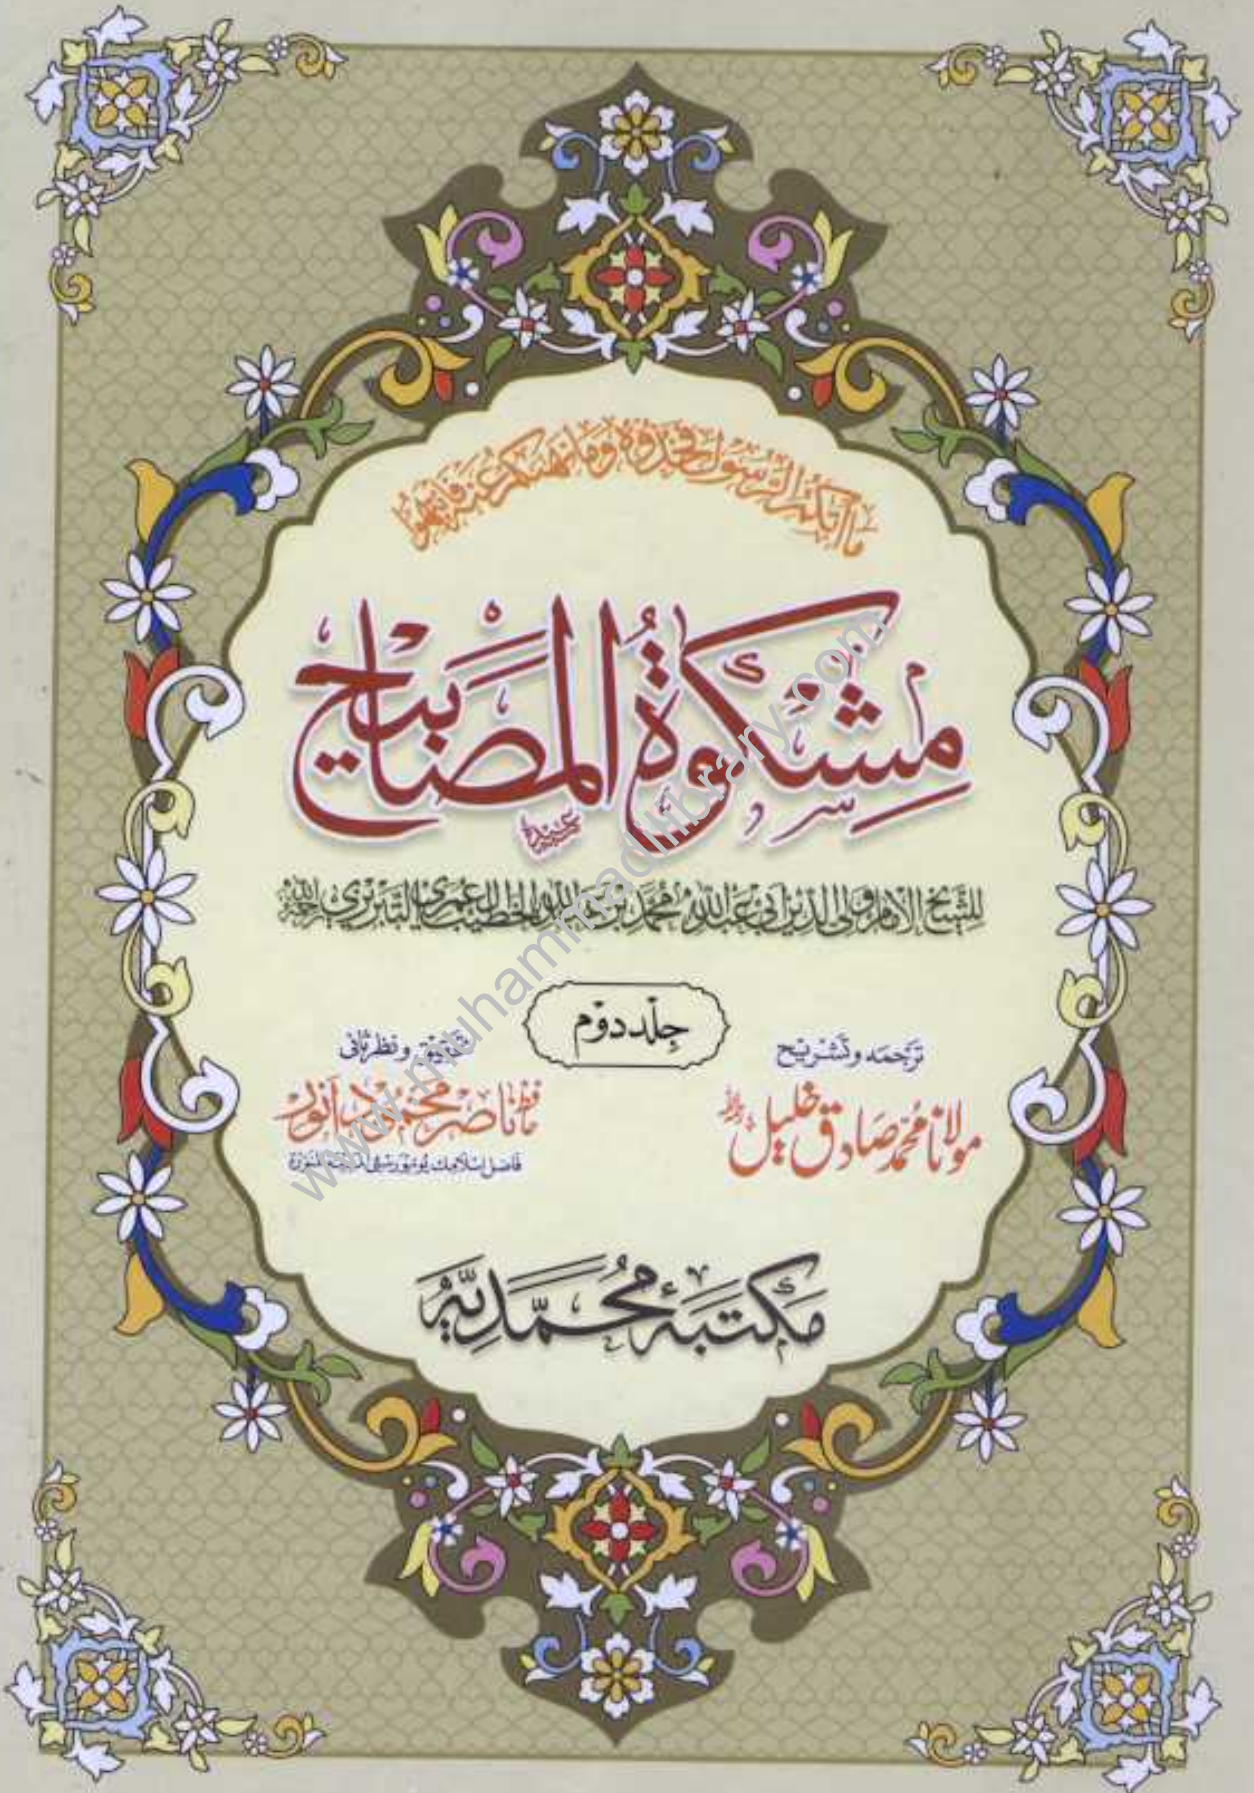 ما آتٰكم الرسول فخذوه وما نهٰكم عنه فانتهوا
مِشْكٰوةُ الْمَصَابِيح
عربی
للشيخ الامام ولی الدین ابی عبد الله محمد بن عبد الله الخطیب العمری التبریزی رحمہ اللہ
جلد دوم
ترجمہ و تشریح
مولانا محمد صادق خلیل
تحقیق و نظر ثانی
حافظ ناصر محمود انور
فاضل اسلامک یونیورسٹی مدینہ منورہ
مکتبہ محمدیہ
www.muhammadilibrary.com